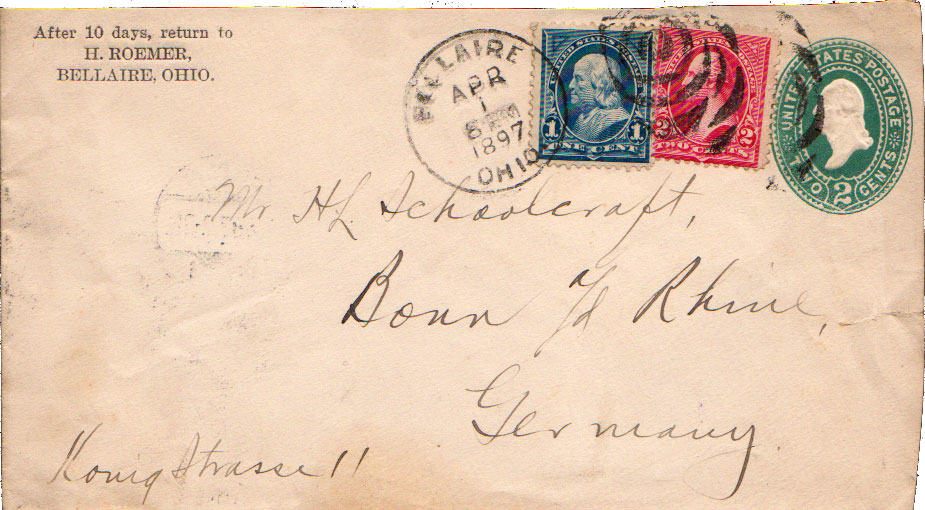 After 10 days, return to
H. ROEMER,
BELLAIRE, OHIO.
BELLAIRE
APR
1
1897
OHIO
UNITED STATES POSTAGE
1 1
ONE CENT
2 2
TWO CENTS
UNITED STATES POSTAGE
TWO 2 CENTS
Mr. HL Schoolcraft,
Bonn a/d Rhine,
Germany
Konig Strasse 11